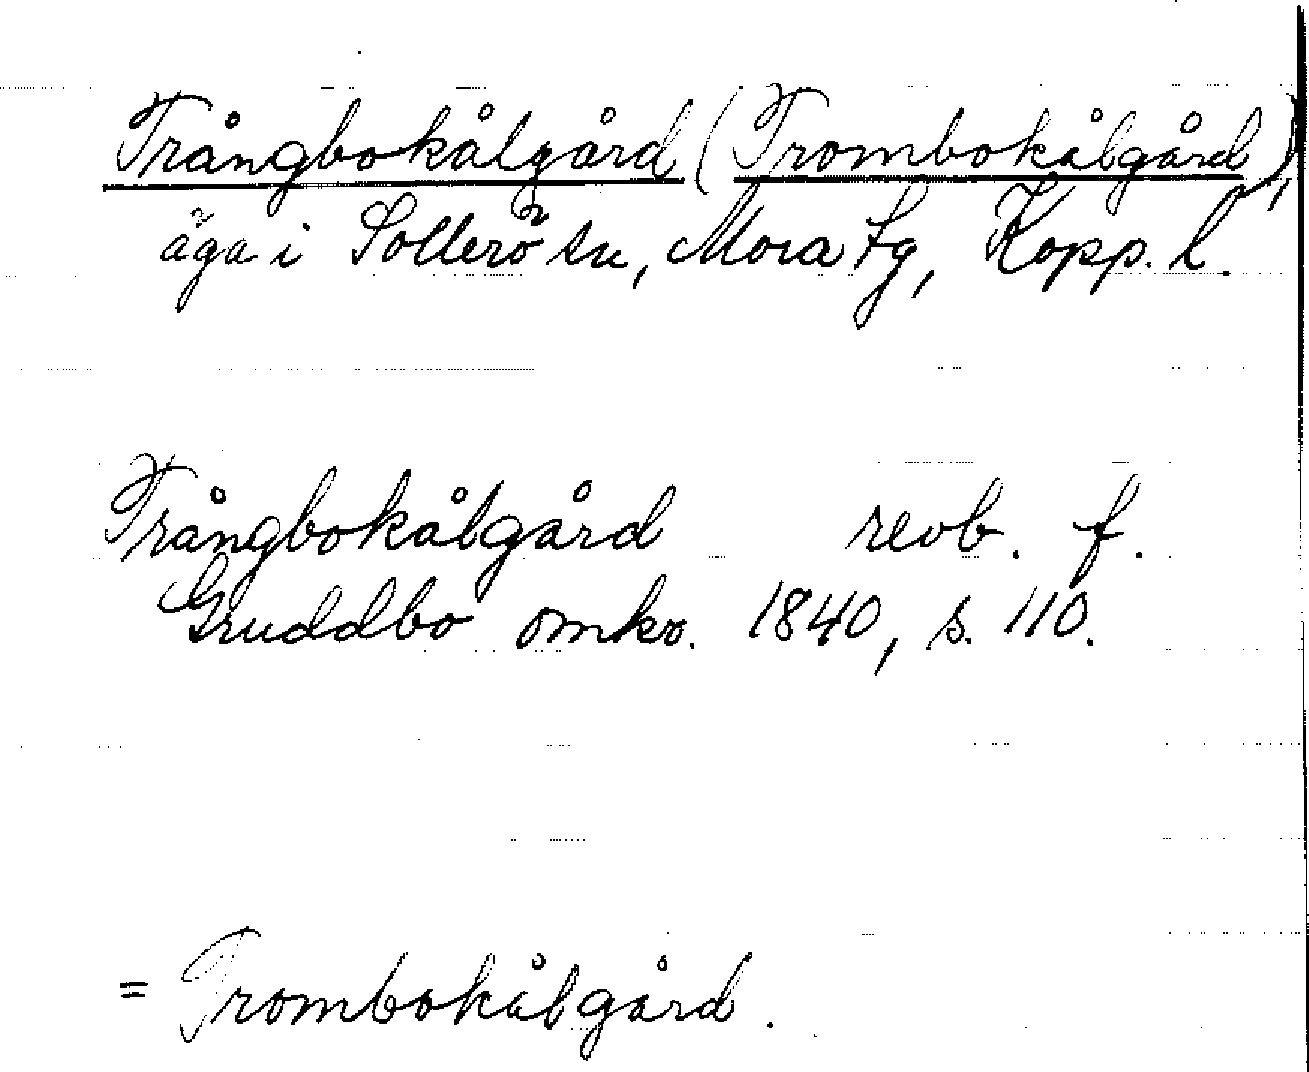 Trångbokålgård (Trombokålgård),
äga i Sollerö sn, Mora tg, Kopp. l.
Trångbokålgård revb. f.
Gruddbo omkr. 1840, s. 110.
= Trombokålgård.